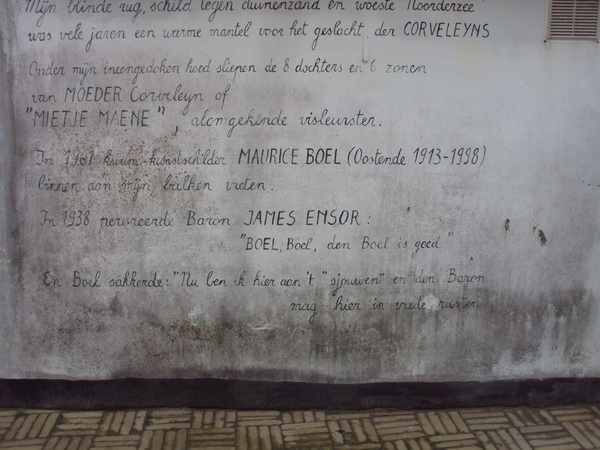 Mijn blinde rug, schild tegen duinenzand en woeste Noorderzee
was vele jaren een warme mantel voor het geslacht, der CORVELEYNS
Onder mijn ineengedoken hoed sliepen de 8 dochters en 6 zonen
van MOEDER Corveleyn of
"MIETJE MAENE", alomgekende visleurster.
In 1961 kunstschilder MAURICE BOEL (Oostende 1913-1998)
binnen aan mijn balken vreten.
In 1938 peroreerde Baron JAMES ENSOR:
"BOEL, Boel, den Boel is goed"
En Boel sakkerde: "Nu ben ik hier aan 't "sjouwen" en den Baron
mag hier in vrede rusten